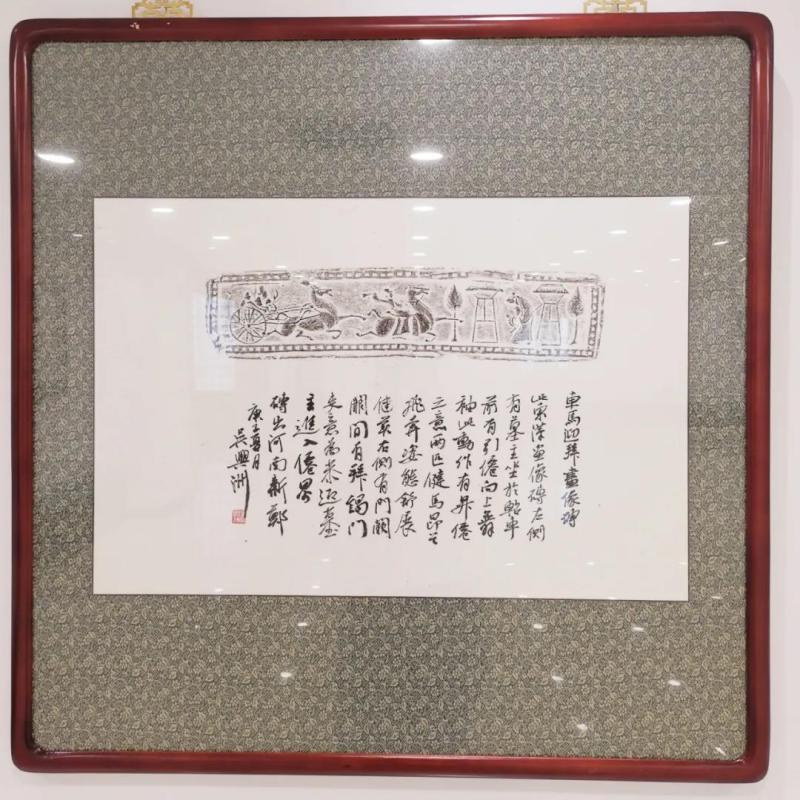 車馬迎拜畫像磚
此東漢畫像磚左側
有墓主坐於軺車
前有引僊向上舞
袖此動作有昇僊
之意兩匹健馬昂首
飛奔姿態舒展
健美右側有門闕
闕間有拜謁門
吏意為来迎墓
主進入僊界
磚出河南新鄭
庚子夏月
吳興洲